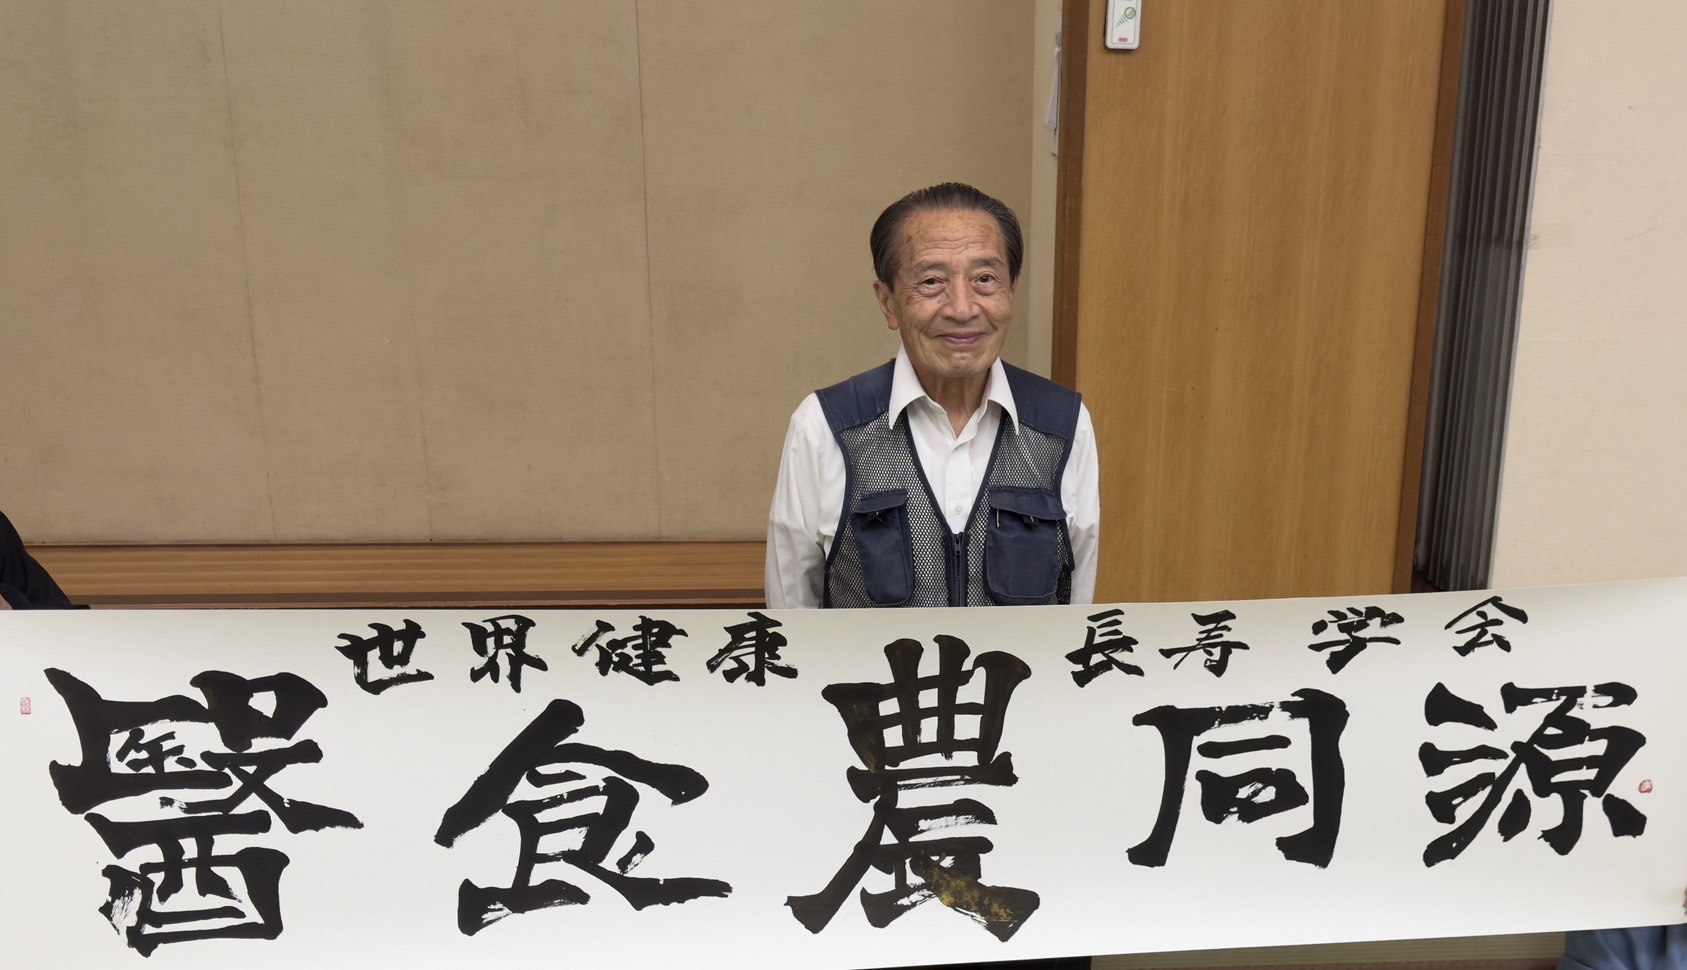 世界健康長寿学会
醫食農同源